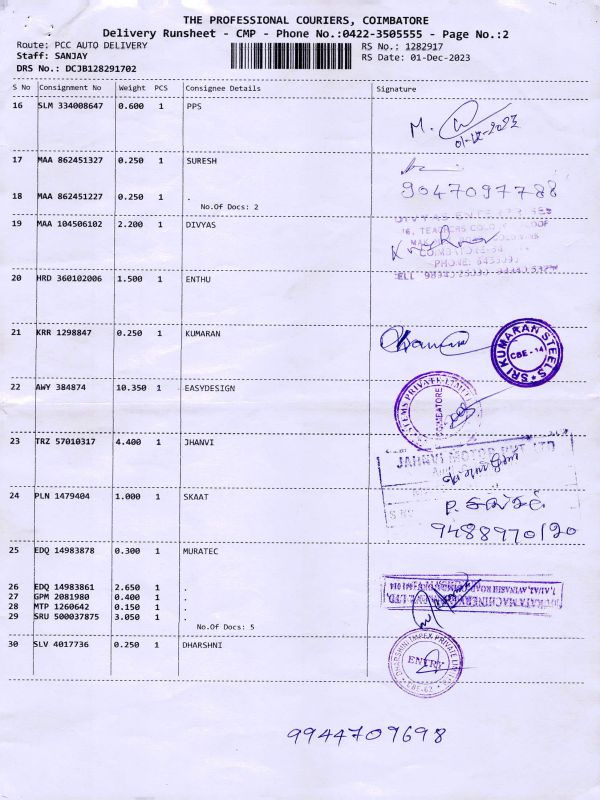 THE PROFESSIONAL COURIERS, COIMBATORE
Delivery Runsheet - CMP - Phone No.:0422-3505555 - Page No.:2
Route: PCC AUTO DELIVERY RS No.: 1282917
Staff: SANJAY RS Date: 01-Dec-2023
DRS No.: DCJB128291702
S No Consignment No Weight PCS Consignee Details Signature
16 SLM 334008647 0.600 1 PPS
M.
01-12-2023
17 MAA 862451327 0.250 1 SURESH
18 MAA 862451227 0.250 1 . 9047097788
No.Of Docs: 2
19 MAA 104506102 2.200 1 DIVYAS
16, TEACHERS COLONY
COIMBATORE
PHONE:
20 HRD 360102006 1.500 1 ENTHU
21 KRR 1298847 0.250 1 KUMARAN
SRI KUMARAN STEELS
CBE - 14
22 AWY 384874 10.350 1 EASYDESIGN
PRIVATE LIMITED
COIMBATORE
23 TRZ 57010317 4.400 1 JHANVI
JAHNVI MOTOR PVT LTD
24 PLN 1479404 1.000 1 SKAAT
9488970120
25 EDQ 14983878 0.300 1 MURATEC
26 EDQ 14983861 2.650 1 .
27 GPM 2081980 0.400 1 .
28 MTP 1260642 0.150 1 .
29 SRU 500037875 3.050 1 .
No.Of Docs: 5
MACHINERY
AVINASHI ROAD
30 SLV 4017736 0.250 1 DHARSHNI
DHARSHINI IMPEX PRIVATE LIMITED
ENTRY
CBE-62
9944709698